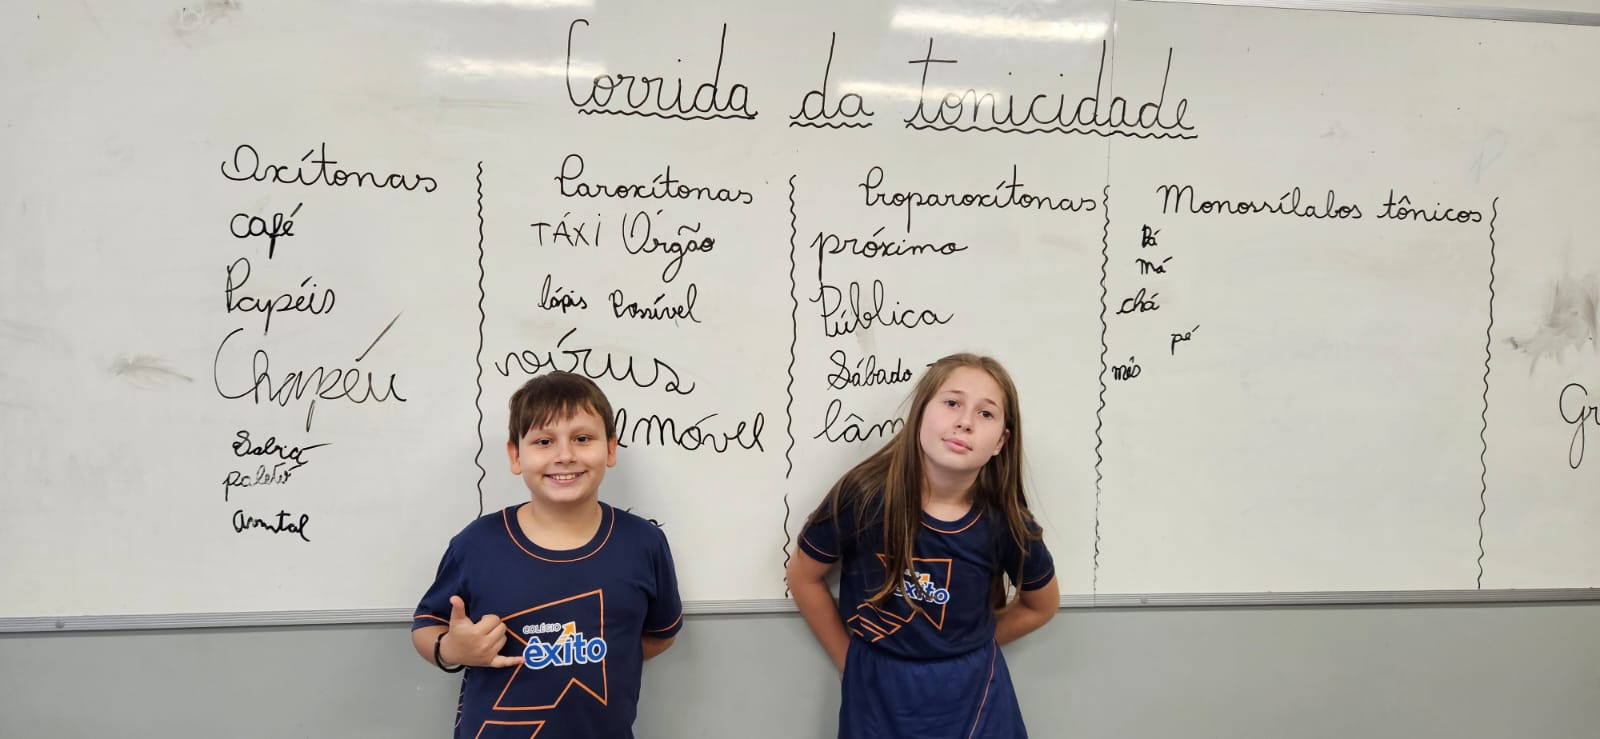 Corrida da tonicidade
Oxítonas
café
Papéis
Chapéu
Sabiá
paletó
Avental
Paroxítonas
TÁXI Órgão
lápis Possível
vírus
Móvel
Proparoxítonas
próximo
Pública
Sábado
lâm
Monossílabos tônicos
Pá
má
chá
pé
mês
Gr
COLÉGIO
êxito
êxito